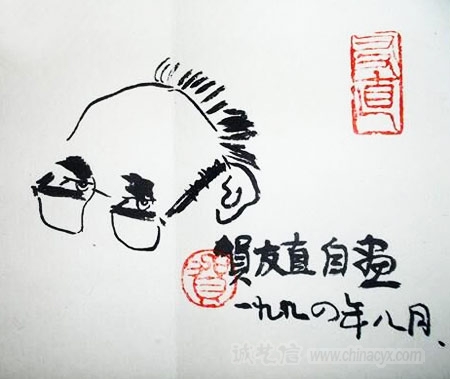 友直
賀友直自畫
賀
一九九四年八月、
诚艺信 www.chinacyx.com